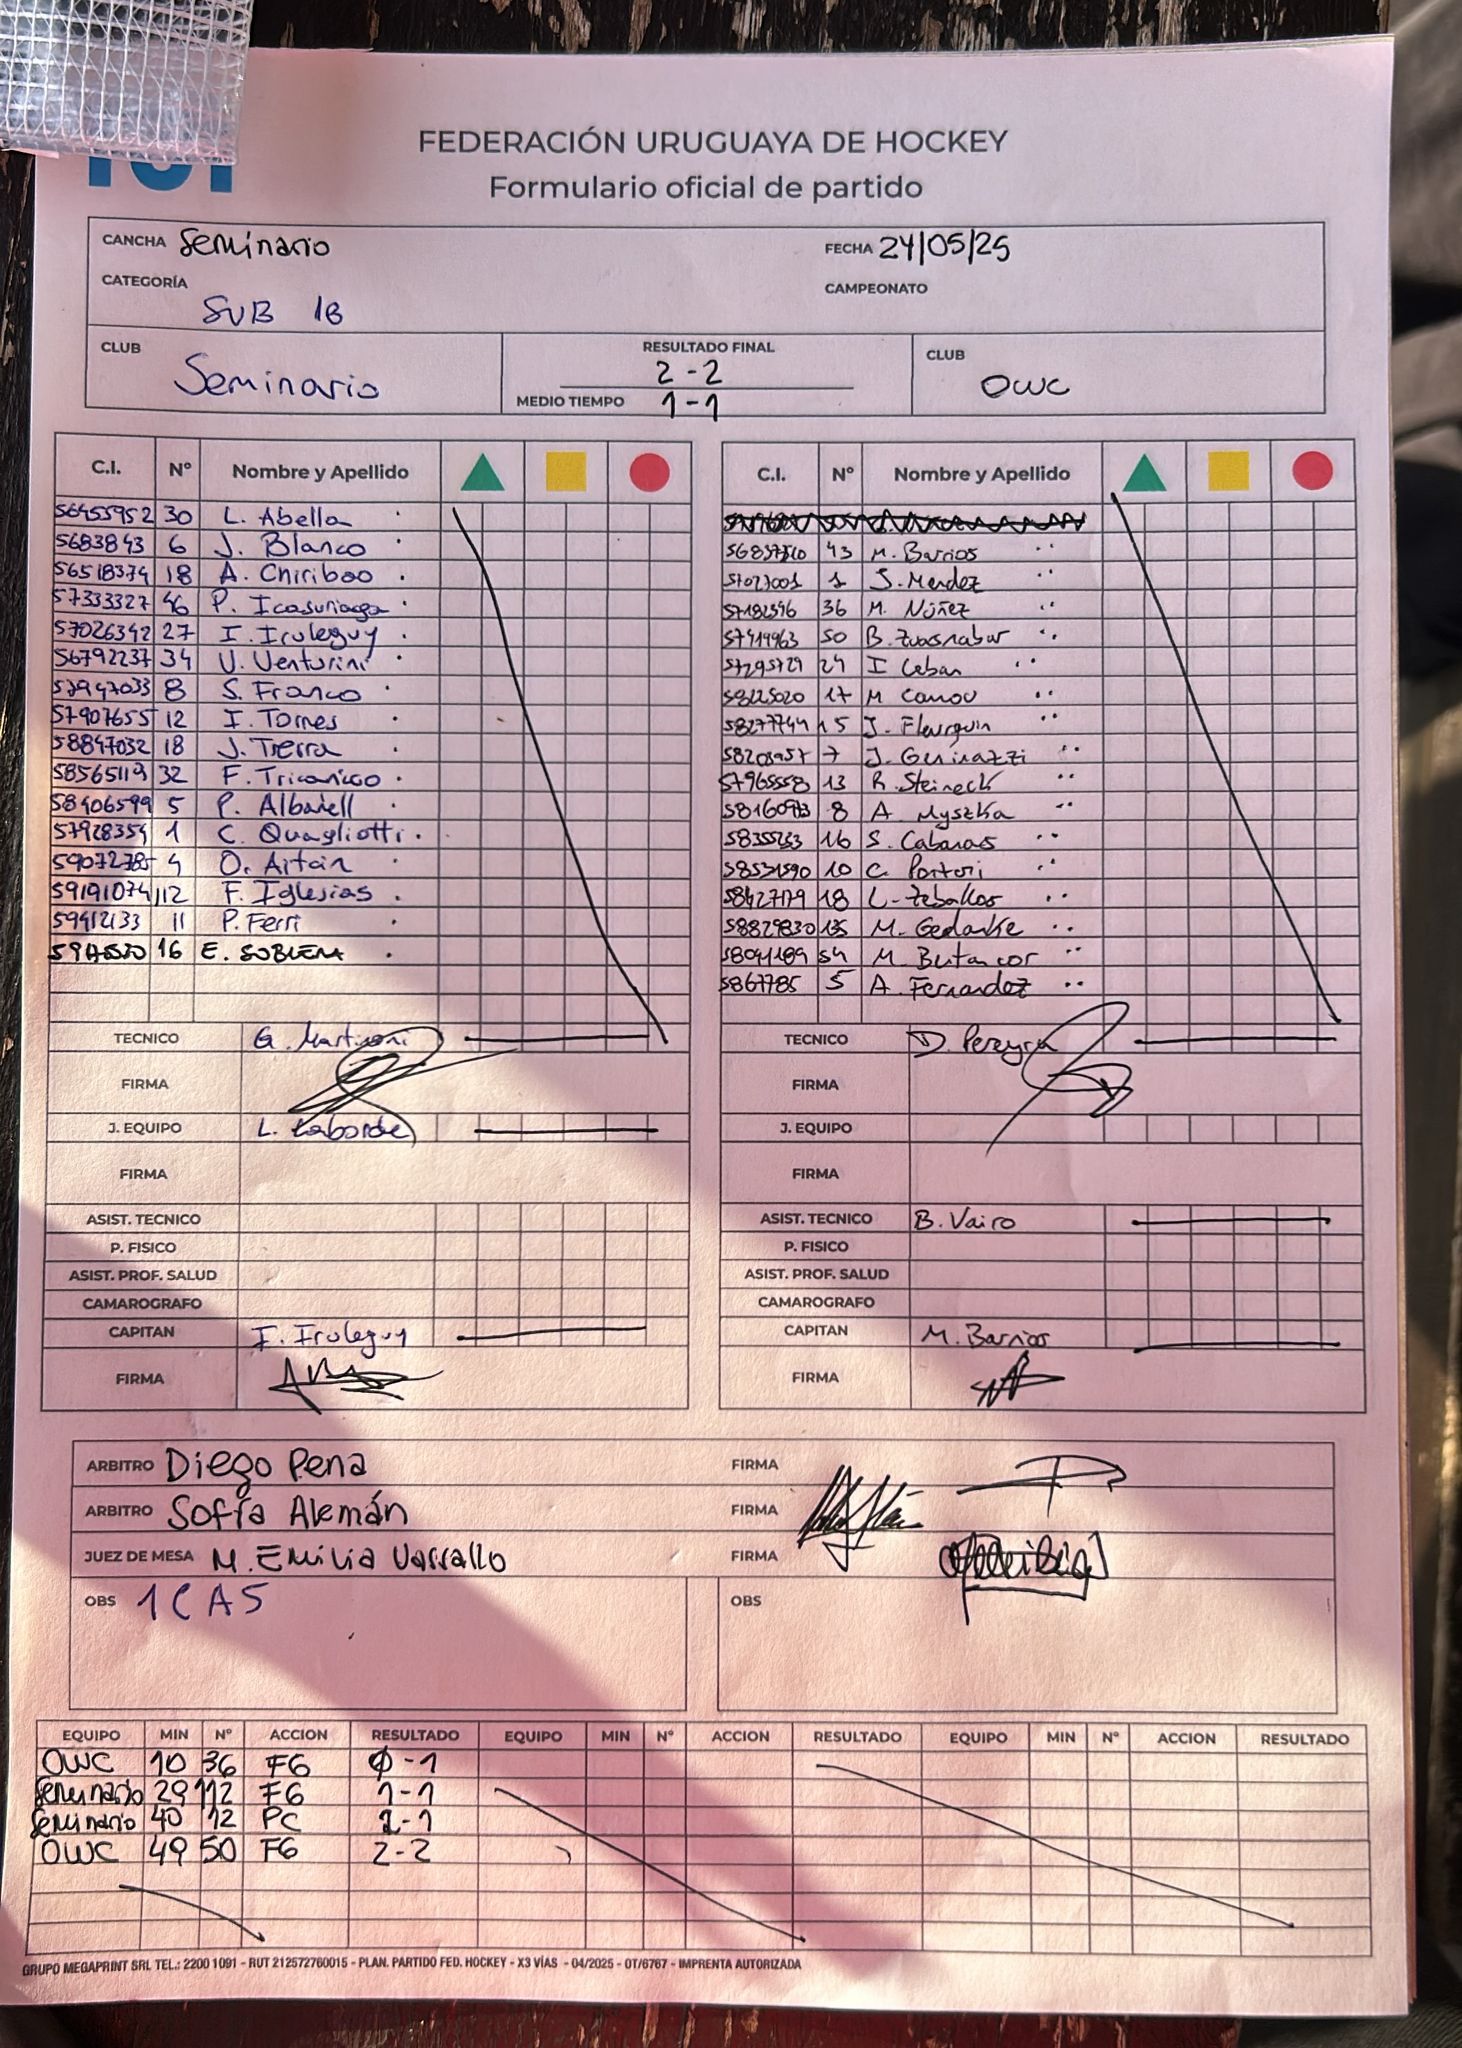 FEDERACIÓN URUGUAYA DE HOCKEY
Formulario oficial de partido
CANCHA Seminario FECHA 24/05/25
CATEGORÍA SUB 16 CAMPEONATO
CLUB Seminario RESULTADO FINAL 2-2 CLUB OWC
MEDIO TIEMPO 1-1
C.I. Nº Nombre y Apellido C.I. Nº Nombre y Apellido
56455952 30 L. Abella
5683843 6 J. Blanco 43 M. Barrios
56518374 18 A. Chiriboo 1 J. Mendez
57333327 46 P. Icasuriaga 36 M. Núñez
57026342 27 I. Iruleguy 50 B.
56792237 34 V. Venturini 24 I Ceban
57947033 8 S. Franco 17 M
57907655 12 I. Torres 58277744 15 J. Fleurquin
58847032 18 J. Trerra 7 J. Geninazzi
58565119 32 F. Tricanico 57965558 13 R. Steineck
58406599 5 P. Albanell 8 A. Myszka
57928354 1 C. Quagliotti 16 S. Cabanas
59072785 4 O. Aitan 58531590 10 C. Portori
59191074 112 F. Iglesias 58427179 18 L. Zeballos
59412133 11 P. Ferri 58829830 135 M. Gedanke
16 E. SOBLERA 58041189 54 M. Butancor
5867785 5 A. Fernandez
TECNICO G. Martinoni TECNICO D. Pereyra
FIRMA FIRMA
J. EQUIPO L. Laborde J. EQUIPO
FIRMA FIRMA
ASIST. TECNICO ASIST. TECNICO B. Vairo
P. FISICO P. FISICO
ASIST. PROF. SALUD ASIST. PROF. SALUD
CAMAROGRAFO CAMAROGRAFO
CAPITAN I. Iruleguy CAPITAN M. Barrios
FIRMA FIRMA
ARBITRO Diego Pena FIRMA
ARBITRO Sofía Alemán FIRMA
JUEZ DE MESA M. Emilia Vassallo FIRMA
OBS 1 C A S OBS
EQUIPO MIN Nº ACCION RESULTADO EQUIPO MIN Nº ACCION RESULTADO EQUIPO MIN Nº ACCION RESULTADO
OWC 10 36 FG 0-1
Seminario 29 112 FG 1-1
Seminario 40 12 PC 2-1
OWC 49 50 FG 2-2
GRUPO MEGAPRINT SRL TEL.: 2200 1091 - RUT 212572760015 - PLAN. PARTIDO FED. HOCKEY - X3 VÍAS - 04/2025 - OT/6767 - IMPRENTA AUTORIZADA